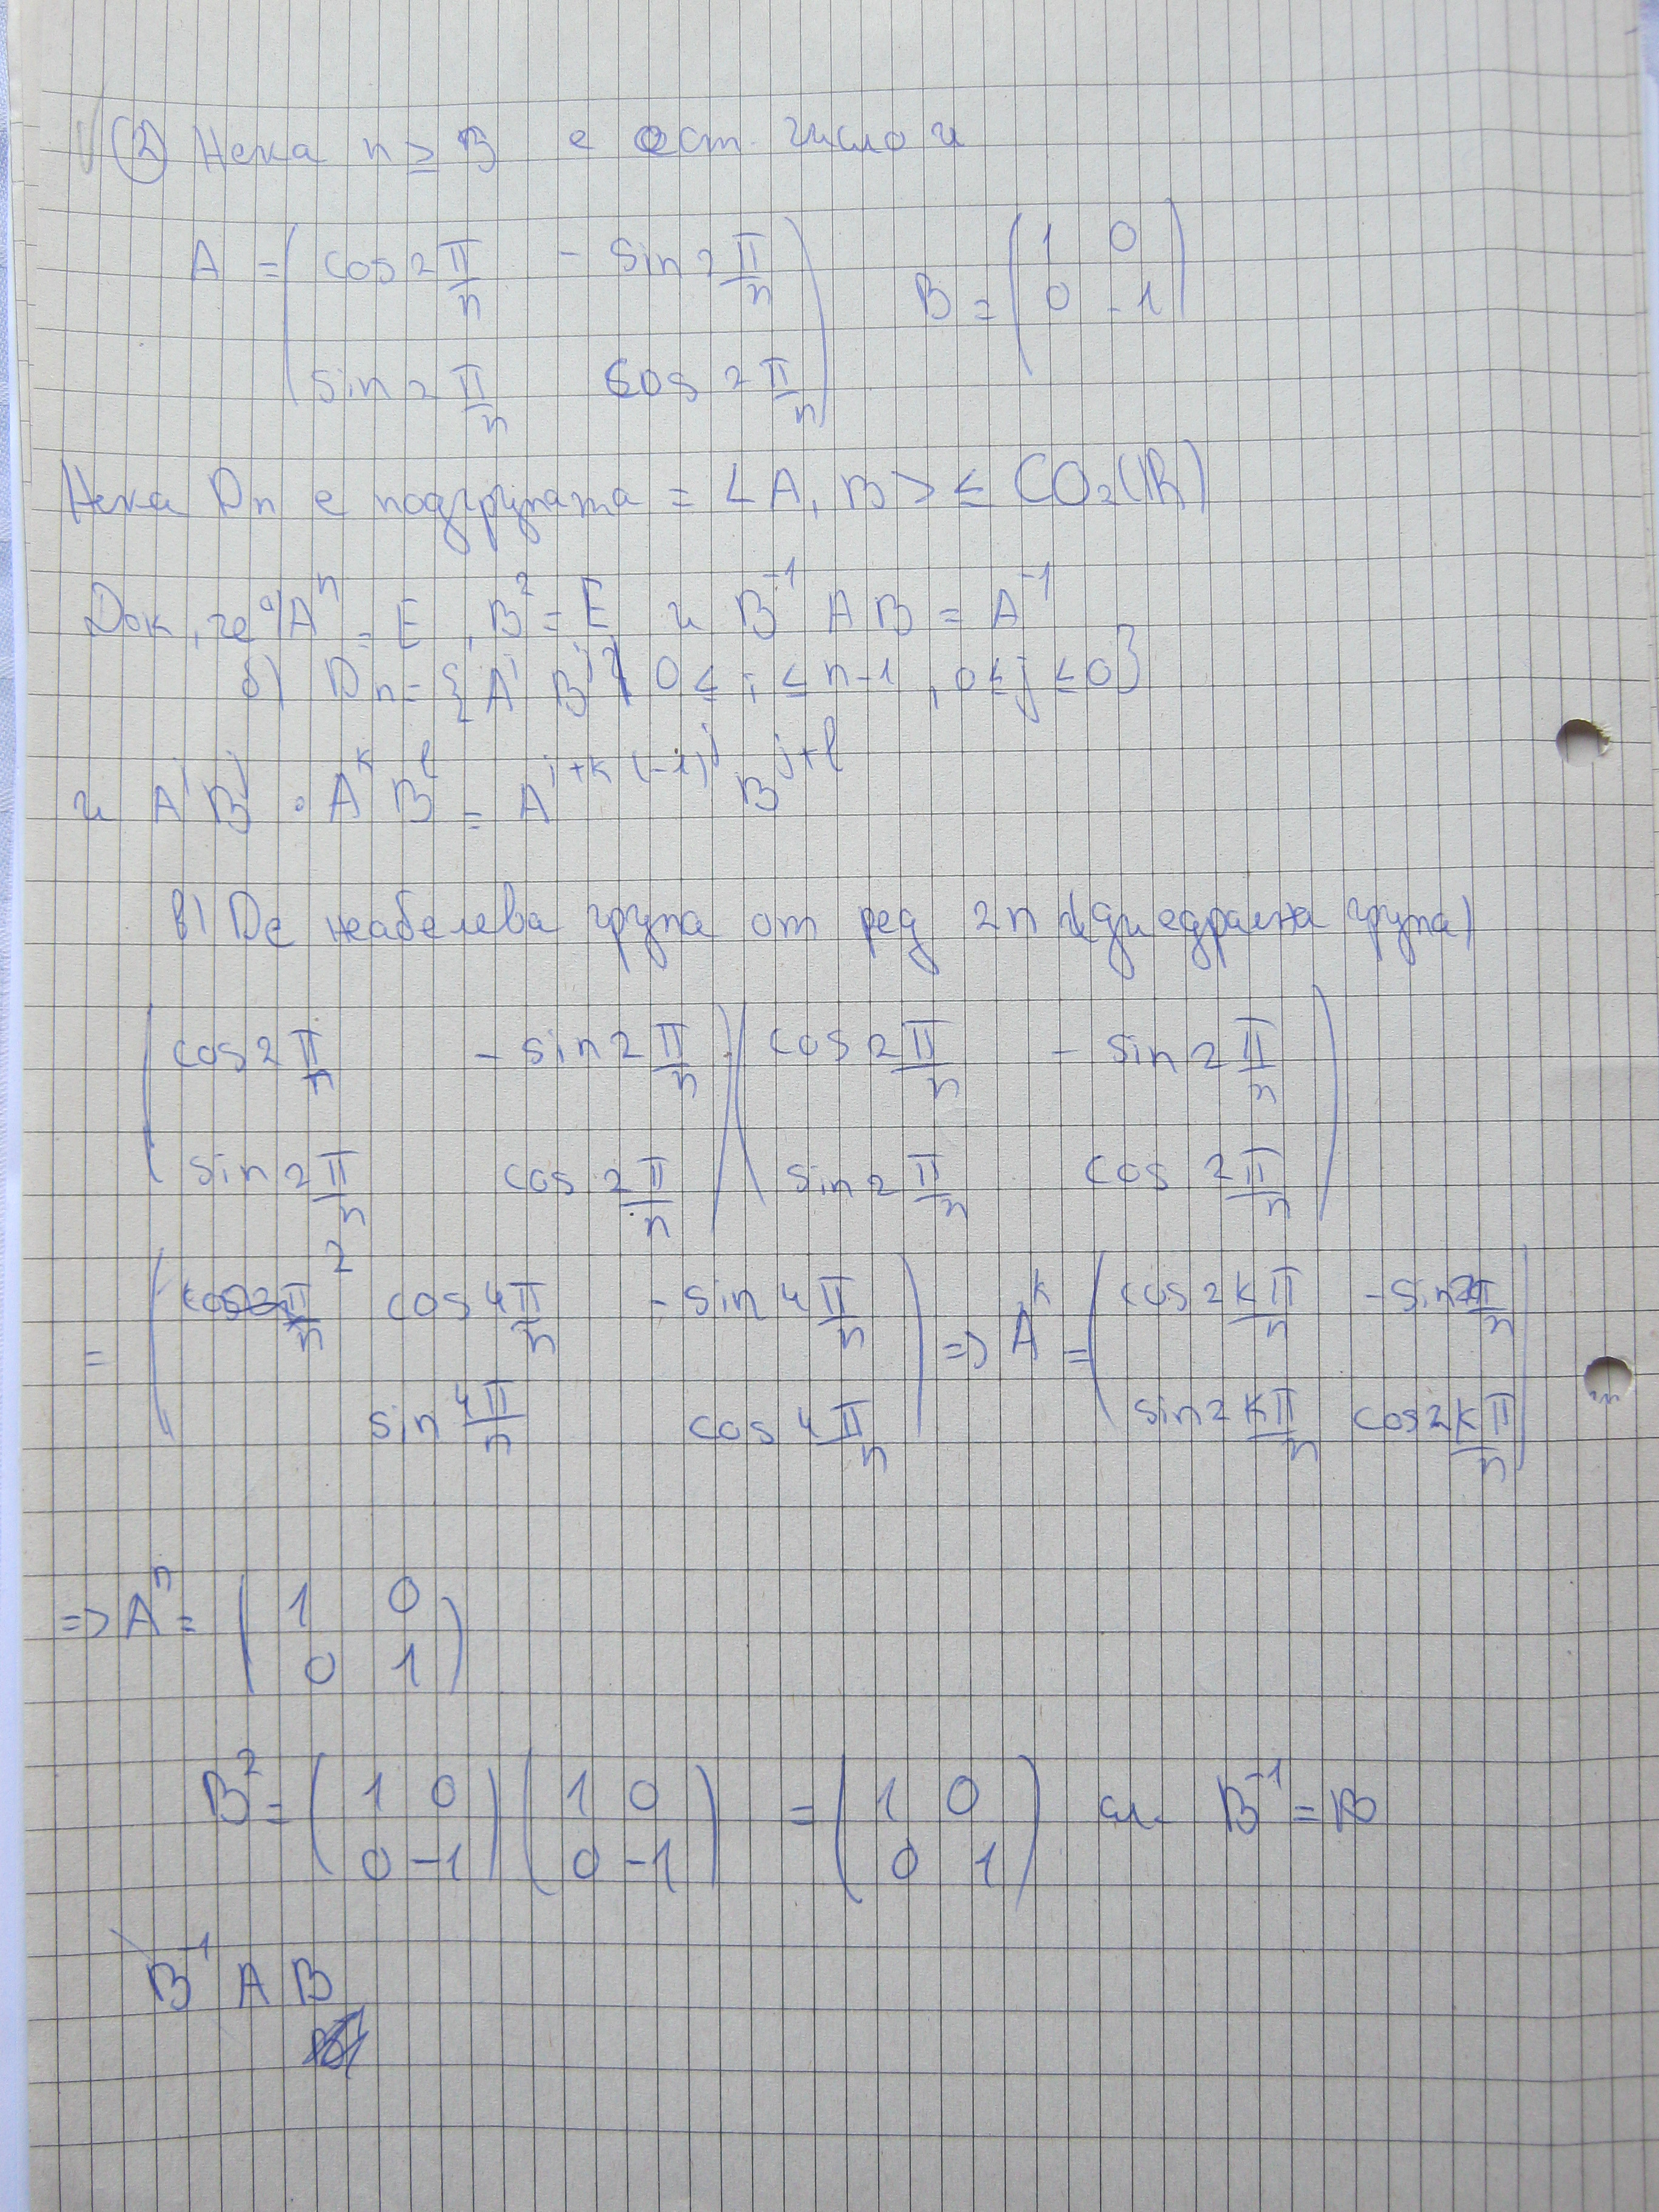 ② Нека n ≥ 3 е ест. число и
A = ( cos 2π/n  - sin 2π/n )  B = ( 1 0 )
( sin 2π/n  cos 2π/n )  ( 0 -1 )
Нека Dn е подгрупата = < A, B > ≤ CO₂(ℝ)
Док, че а) Aⁿ = E, B² = E и B⁻¹ A B = A⁻¹
б) Dn = { Aⁱ Bʲ | 0 ≤ i ≤ n-1, 0 ≤ j ≤ 0 }
и Aⁱ Bʲ . Aᵏ Bˡ = A^(i+k(-1)^j) B^(j+l)
в) D е неабелева група от ред 2n (диедрална група)
( cos 2π/n  - sin 2π/n ) ( cos 2π/n  - sin 2π/n )
( sin 2π/n  cos 2π/n ) ( sin 2π/n  cos 2π/n )
= ( cos 4π/n  - sin 4π/n ) => Aᵏ = ( cos 2kπ/n  - sin 2kπ/n )
( sin 4π/n  cos 4π/n )  ( sin 2kπ/n  cos 2kπ/n )
=> Aⁿ = ( 1 0 )
( 0 1 )
B² = ( 1 0 ) ( 1 0 ) = ( 1 0 ) B⁻¹ = B
( 0 -1 ) ( 0 -1 ) ( 0 1 )
B⁻¹ A B